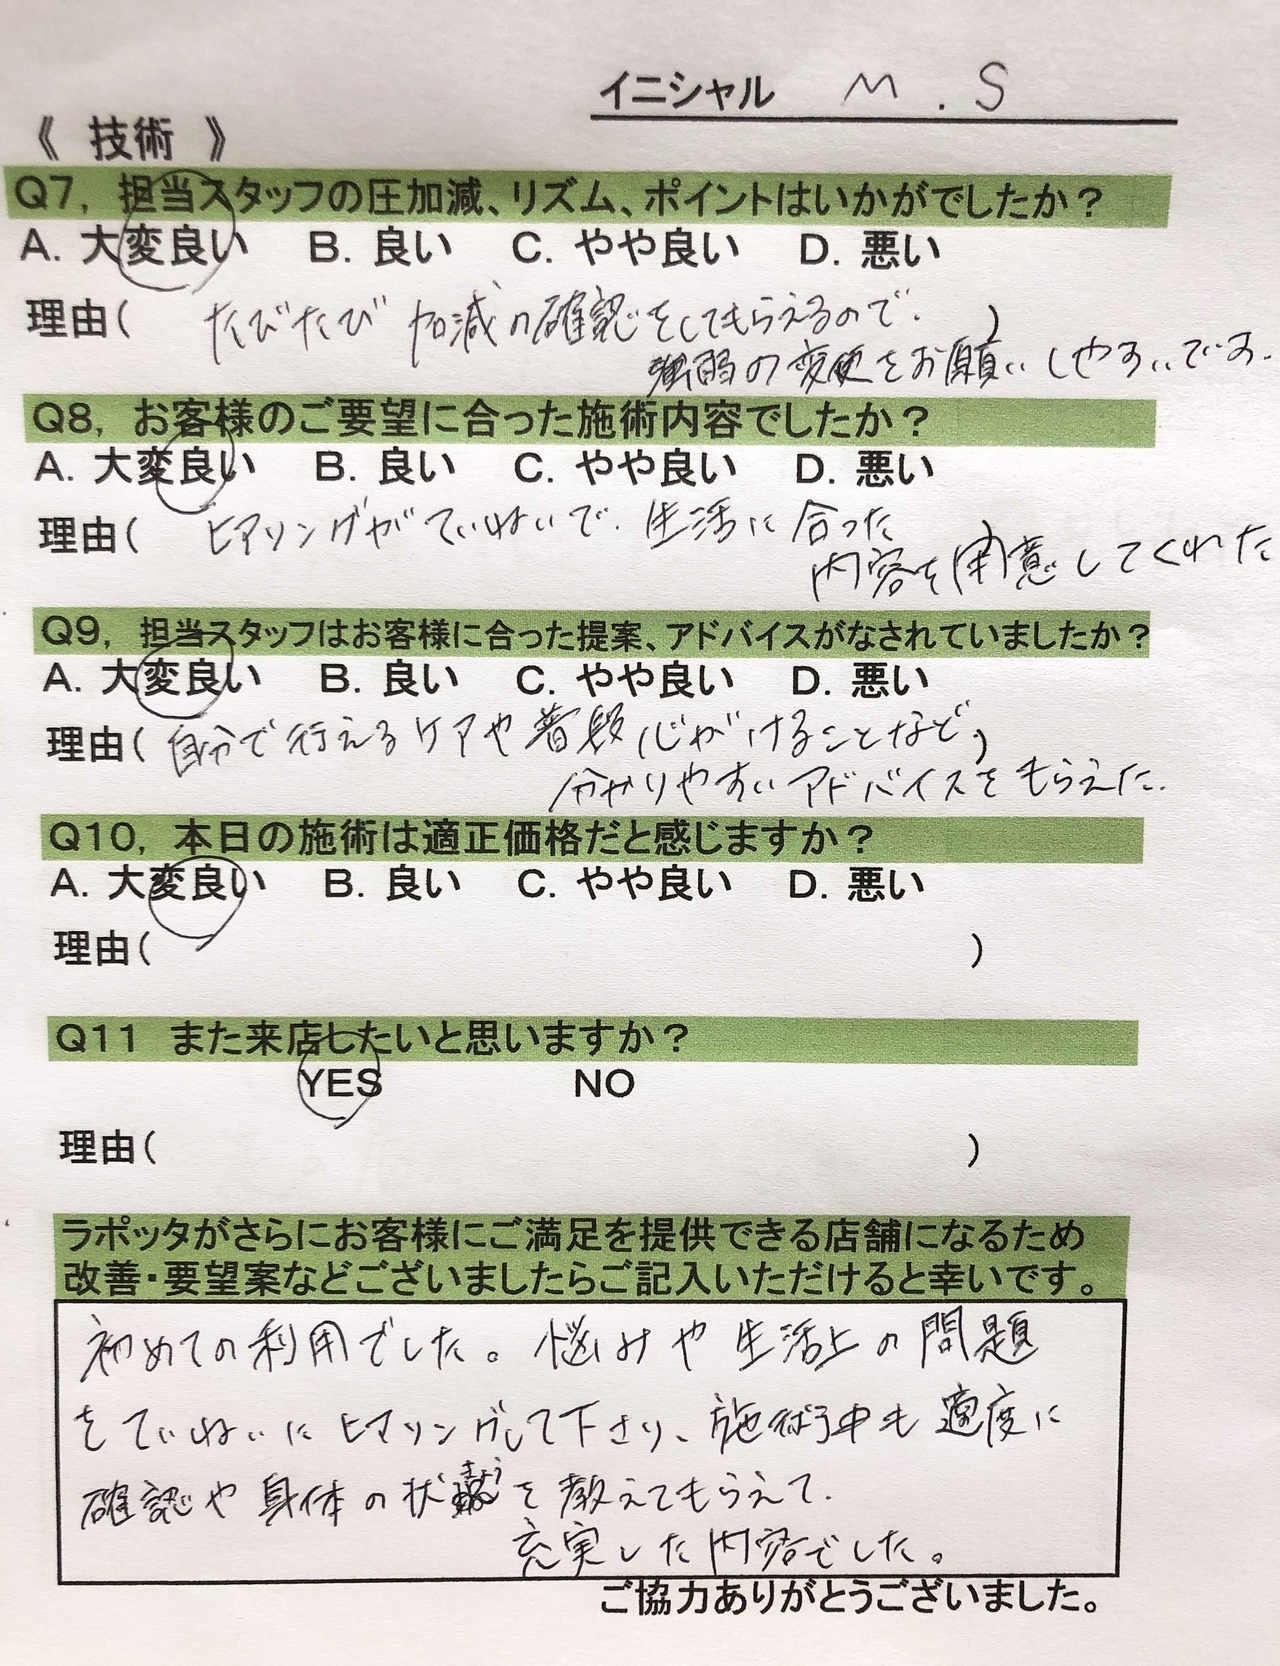 イニシャル M.S
《 技術 》
Q7, 担当スタッフの圧加減、リズム、ポイントはいかがでしたか？
A. 大変良い B. 良い C. やや良い D. 悪い
理由( たびたび 加減の確認をしてもらえるので. )
強弱の変更をお願いしやすいです.
Q8, お客様のご要望に合った施術内容でしたか？
A. 大変良い B. 良い C. やや良い D. 悪い
理由( ヒアリングがていねいで. 生活に合った )
内容を用意してくれた
Q9, 担当スタッフはお客様に合った提案、アドバイスがなされていましたか？
A. 大変良い B. 良い C. やや良い D. 悪い
理由( 自分で行えるケアや普段心がけることなど )
分かりやすいアドバイスをもらえた.
Q10, 本日の施術は適正価格だと感じますか？
A. 大変良い B. 良い C. やや良い D. 悪い
理由( )
Q11 また来店したいと思いますか？
YES NO
理由( )
ラポッタがさらにお客様にご満足を提供できる店舗になるため
改善・要望案などございましたらご記入いただけると幸いです。
初めての利用でした。悩みや生活上の問題
をていねいにヒアリングして下さり、施術中も適度に
確認や身体の状きょうを教えてもらえて.
充実した内容でした。
ご協力ありがとうございました。